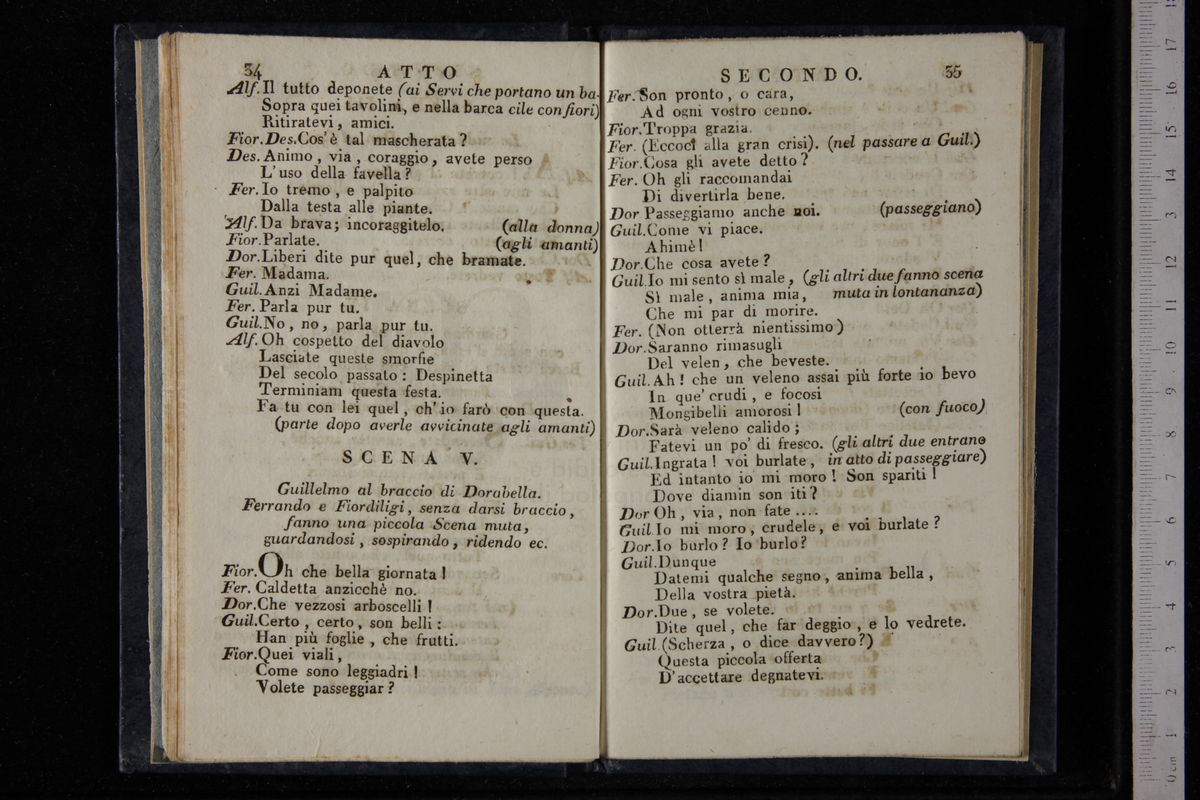 34 ATTO
Alf. Il tutto deponete (ai Servi che portano un ba-
Sopra quei tavolini, e nella barca cile con fiori)
Ritiratevi, amici.
Fior. Des. Cos' è tal mascherata?
Des. Animo, via, coraggio, avete perso
L'uso della favella?
Fer. Io tremo, e palpito
Dalla testa alle piante.
Alf. Da brava; incoraggitelo. (alla donna)
Fior. Parlate. (agli amanti)
Dor. Liberi dite pur quel, che bramate.
Fer. Madama.
Guil. Anzi Madame.
Fer. Parla pur tu.
Guil. No, no, parla pur tu.
Alf. Oh cospetto del diavolo
Lasciate queste smorfie
Del secolo passato: Despinetta
Terminiam questa festa.
Fa tu con lei quel, ch'io farò con questa.
(parte dopo averle avvicinate agli amanti)
SCENA V.
Guillelmo al braccio di Dorabella.
Ferrando e Fiordiligi, senza darsi braccio,
fanno una piccola Scena muta,
guardandosi, sospirando, ridendo ec.
Fior. Oh che bella giornata!
Fer. Caldetta anzicchè no.
Dor. Che vezzosi arboscelli!
Guil. Certo, certo, son belli:
Han più foglie, che frutti.
Fior. Quei viali,
Come sono leggiadri!
Volete passeggiar?
SECONDO. 35
Fer. Son pronto, o cara,
Ad ogni vostro cenno.
Fior. Troppa grazia.
Fer. (Eccoci alla gran crisi). (nel passare a Guil.)
Fior. Cosa gli avete detto?
Fer. Oh gli raccomandai
Di divertirla bene.
Dor Passeggiamo anche noi. (passeggiano)
Guil. Come vi piace.
Ahimè!
Dor. Che cosa avete?
Guil. Io mi sento sì male, (gli altri due fanno scena
Sì male, anima mia, muta in lontananza)
Che mi par di morire.
Fer. (Non otterrà nientissimo)
Dor. Saranno rimasugli
Del velen, che beveste.
Guil. Ah! che un veleno assai più forte io bevo
In que' crudi, e focosi
Mongibelli amorosi! (con fuoco)
Dor. Sarà veleno calido;
Fatevi un po' di fresco. (gli altri due entrano
Guil. Ingrata! voi burlate, in atto di passeggiare)
Ed intanto io mi moro! Son spariti!
Dove diamin son iti?
Dor Oh, via, non fate ....
Guil. Io mi moro, crudele, e voi burlate?
Dor. Io burlo? Io burlo?
Guil. Dunque
Datemi qualche segno, anima bella,
Della vostra pietà.
Dor. Due, se volete.
Dite quel, che far deggio, e lo vedrete.
Guil. (Scherza, o dice davvero?)
Questa piccola offerta
D'accettare degnatevi.